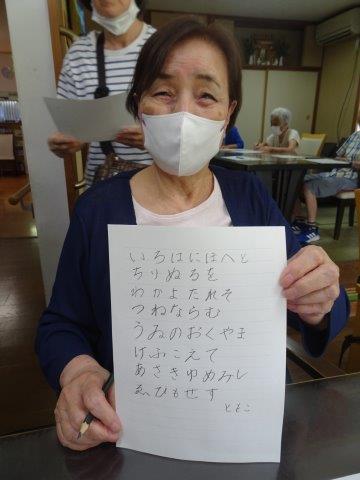 いろはにほへと
ちりぬるを
わかよたれそ
つねならむ
うゐのおくやま
けふこえて
あさきゆめみし
ゑひもせす
ともこ